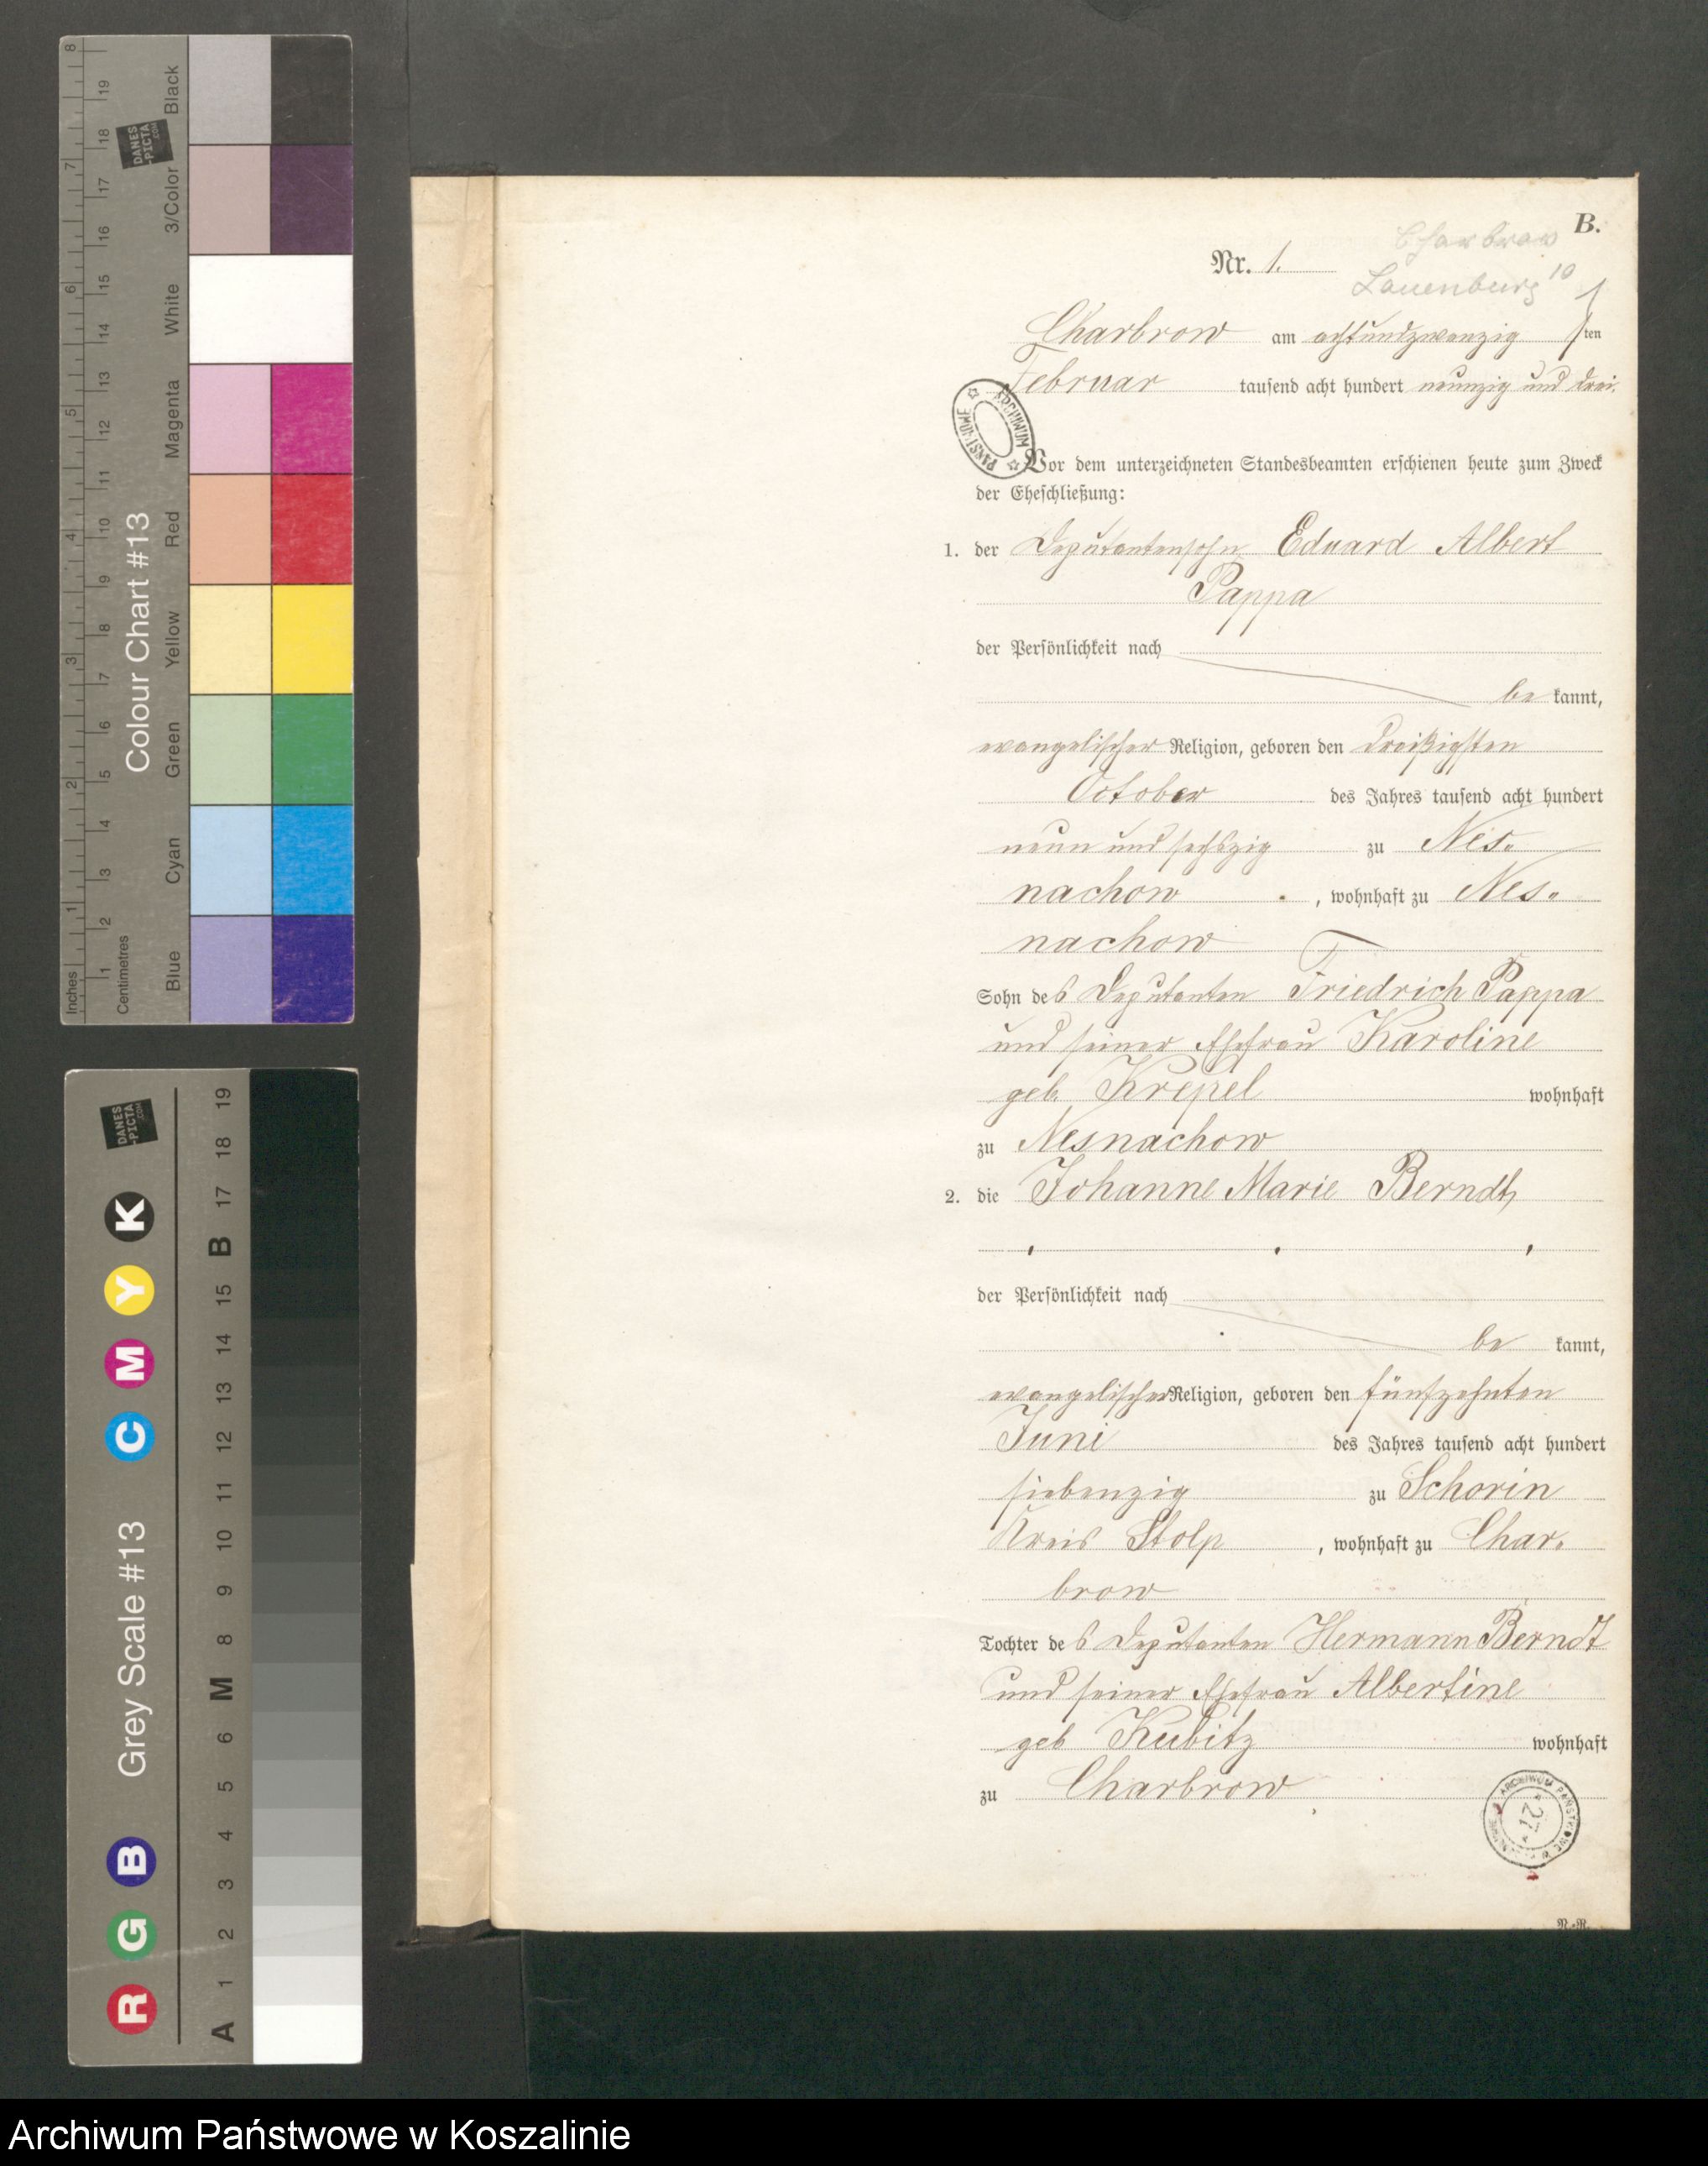 8 7 6 5 4 3 2 1 Inches
19 18 17 16 15 14 13 12 11 10 9 8 7 6 5 4 3 2 1 Centimetres
DANES -PICTA .COM
Colour Chart #13
Black
3/Color
White
Magenta
Red
Yellow
Green
Cyan
Blue
DANES -PICTA .COM
Grey Scale #13
R G B C M Y K
A 1 2 3 4 5 6 M 8 9 10 11 12 13 14 15 B 17 18 19
B.
Charbrow
Nr. 1.
Lauenburg 10
Charbrow am achtundzwanzig ten
Februar tausend acht hundert neunzig und drei.
ARCHIWUM PAŃSTWOWE
Vor dem unterzeichneten Standesbeamten erschienen heute zum Zweck
der Eheschließung:
1. der Deputantensohn Eduard Albert
Pappa
der Persönlichkeit nach
be kannt,
evangelischer Religion, geboren den dreißigsten
October des Jahres tausend acht hundert
neun und sechszig zu Nes.
nachow , wohnhaft zu Nes.
nachow
Sohn des Deputanten Friedrich Pappa
und seiner Ehefrau Karoline
geb. Krepel wohnhaft
zu Nesnachow
2. die Johanne Marie Berndt,
der Persönlichkeit nach
be kannt,
evangelischer Religion, geboren den fünfzehnten
Juni des Jahres tausend acht hundert
siebenzig zu Schorin
Kreis Stolp , wohnhaft zu Char.
brow
Tochter des Deputanten Hermann Berndt
und seiner Ehefrau Albertine
geb Kubitz wohnhaft
zu Charbrow
ARCHIWUM PAŃSTWOWE W
27
N.-R.
Archiwum Państwowe w Koszalinie